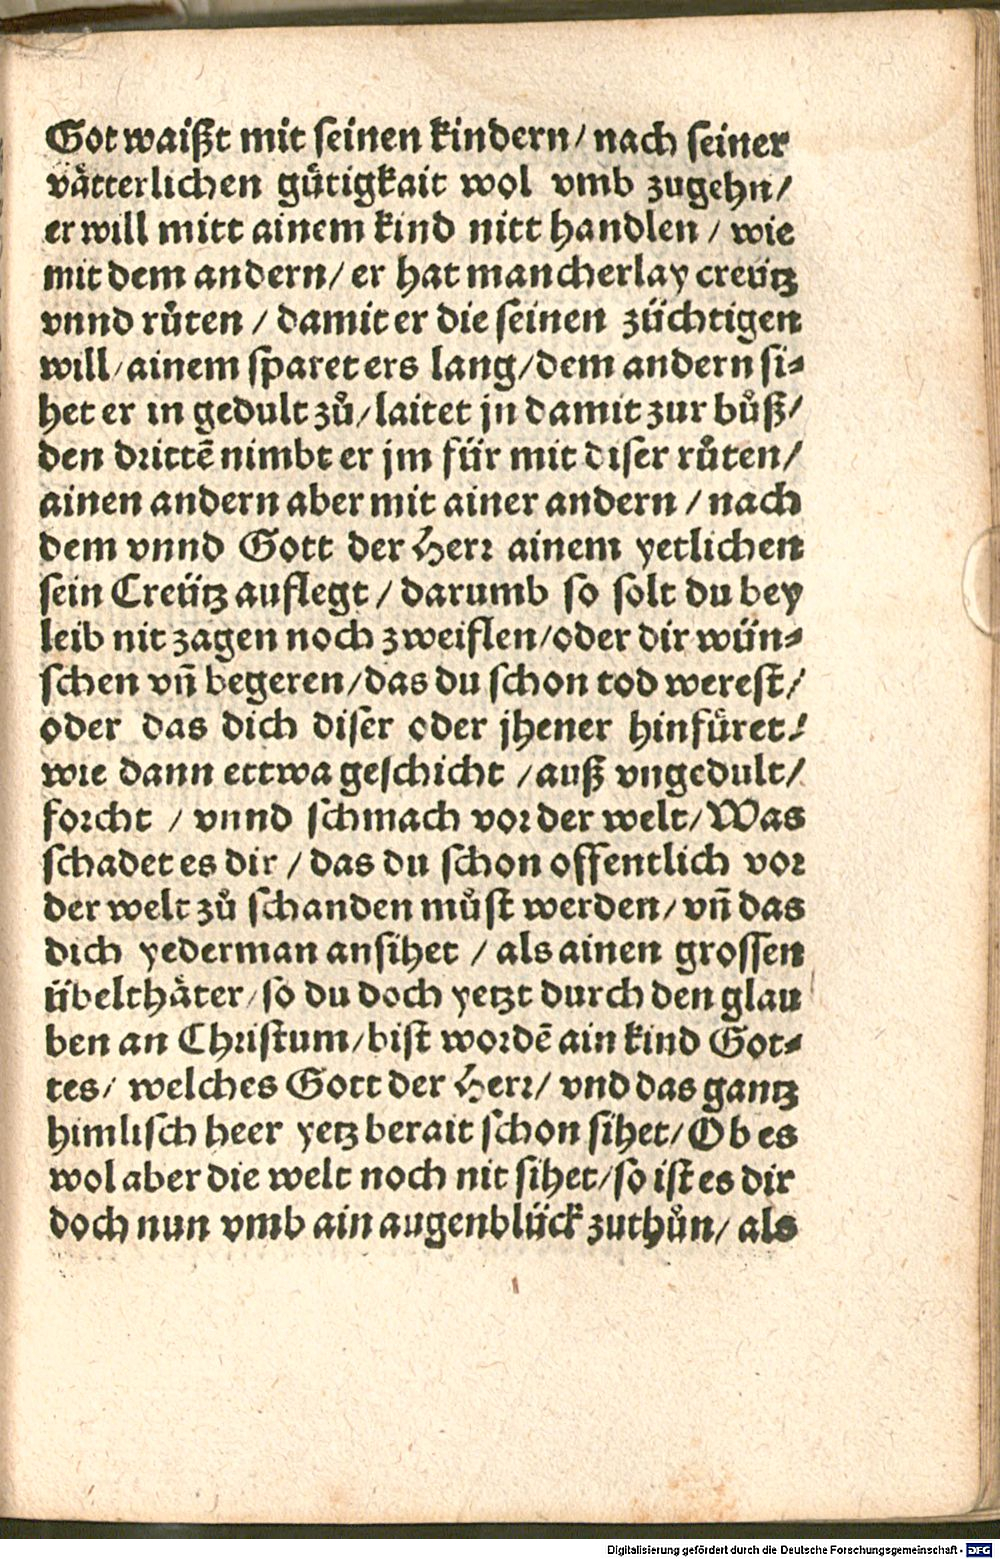 Got waißt mit seinen kindern / nach seiner
vaͤtterlichen guͤtigkait wol vmb zugehn /
er will mitt ainem kind nitt handlen / wie
mit dem andern / er hat mancherlay creütz
vnnd ruͦten / damit er die seinen züchtigen
will / ainem sparet ers lang / dem andern si⸗
het er in gedult zuͦ / laitet jn damit zur buͦß /
den drittē nimbt er jm für mit diser ruͦten /
ainen andern aber mit ainer andern / nach
dem vnnd Gott der Herr ainem yetlichen
sein Creütz auflegt / darumb so solt du bey
leib nit zagen noch zweiflen / oder dir wün⸗
schen vñ begeren / das du schon tod werest /
oder das dich diser oder jhener hinfuͤret /
wie dann ettwa geschicht / auß vngedult /
forcht / vnnd schmach vor der welt / Was
schadet es dir / das du schon offentlich vor
der welt zuͦ schanden muͦst werden / vñ das
dich yederman ansihet / als ainen grossen
übelthaͤter / so du doch yetzt durch den glau
ben an Christum / bist wordē ain kind Got⸗
tes / welches Gott der Herr / vnd das gantz
himlisch heer yetz berait schon sihet / Ob es
wol aber die welt noch nit sihet / so ist es dir
doch nun vmb ain augenblück zuthuͦn / als
Digitalisierung gefördert durch die Deutsche Forschungsgemeinschaft - DFG